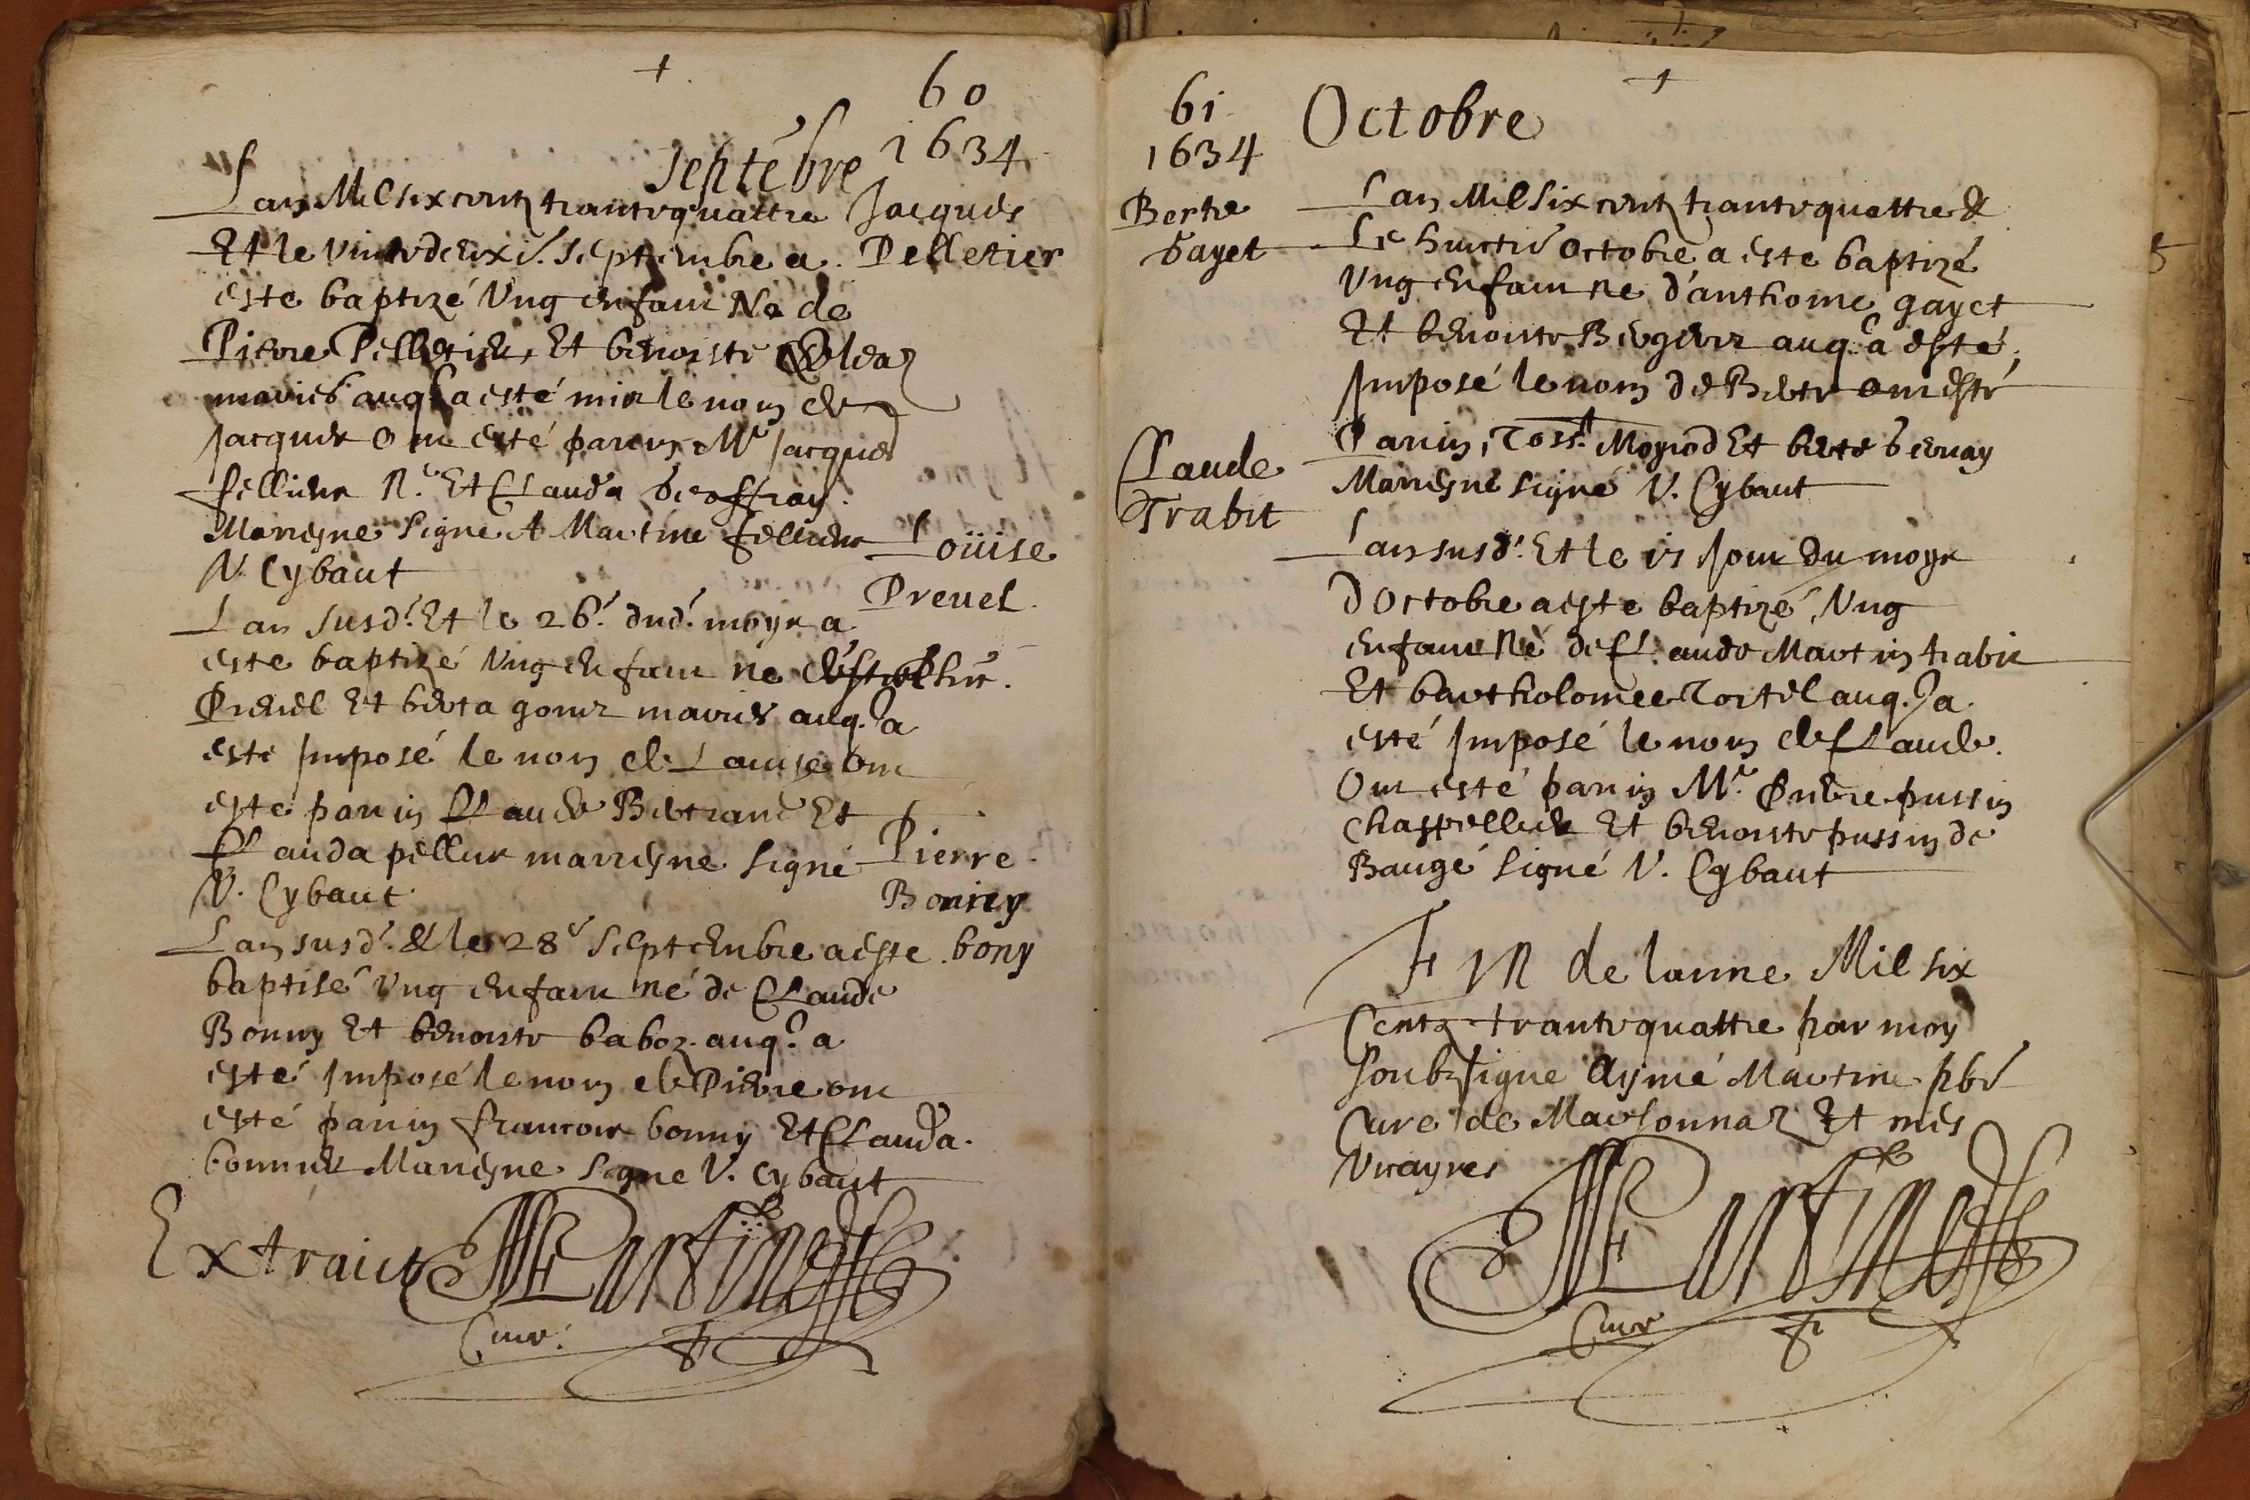 60
1634
Septēbre
Lan Mil six centz trante quattre
Et le vinte deuxi. septembre a
este baptizé Vng enfant Né de
Pierre Pelletier Et benoiste
mariés auql a esté mis le nom de
Jacques Ont esté parrin Mr Jacques
fellieur Nre Et Clauda Geoffray
Marresne Signé A Martine fellieur
V. Cybaut
Jacques
Pelletier
Lan susd. Et le 26. dud. moys a
este baptizé Vng enfant né
Preuel Et berta gomz mariés auq. a
esté Imposé le nom de Louyse Ont
este parrin Claude Bertrand Et
Clauda pellur marresne Signé
V. Cybaut
Loüise
Preuel
Lan susd. & le 28e Septembre a este
baptisé Vng enfant né de Claude
Bonny Et benoiste baboz auq. a
esté Imposé le nom de Pierre ont
esté parrin francois bonny Et Clauda
bonnier Marresne Signe V. Cybaut
Pierre
Bonny
bony
Extraict Martine
Cure
61
1634
Octobre
Berte
Gayet
Lan Mil Six centz trante quattre &
Le huictie Octobre a este baptizé
Vng enfant né d'anthoine gayet
Et benoiste Bergier auq. a esté
Imposé le nom de Berte ont esté
Parrin Toss. Moyrod Et berte bernay
Marresne Signé V. Cybaut
Claude
Trabit
Lan susd. Et le 15 Jour du moys
d Octobre a este baptizé Vng
enfant Né de Claude Martin trabit
Et bartholomee Tortel auq. a
esté Imposé le nom de Claude
Ont esté parrin Mr Pierre pussin
Chappellier Et benoiste pussin de
Baugé Signé V. Cybaut
Fin de lanne Mil six
Centz trante quattre par moy
soubzsigne Aymé Martine pbr
Cure de Marsonnaz Et mes
Vicayres
Martine
Cure